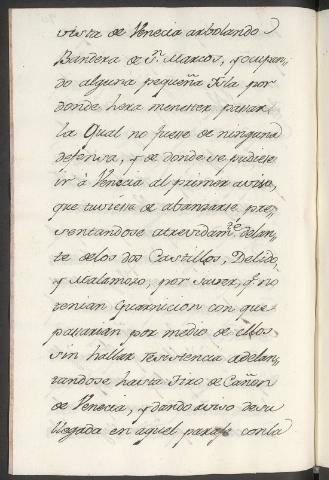 vista de Venecia arbolando
Bandera de Sn. Marcos, y ocupan„
do alguna pequeña Isla por
donde hera menester pasar
la Qual no fuese de ninguna
defensa, y de donde se pudiese
ir à Venecia al primer aviso,
que tuviese de abanzarse pre„
sentandose atrevidamte. delan„
te de los dos Castillos, Delido,
y Malamozo, por saver, q.e no
tenian Guarnicion con que
pasarian por medio de ellos
sin hallar resistencia adelan„
tandose hasta Tiro de Cañon
de Venecia, y dando aviso de su
llegada en aquel parage con la